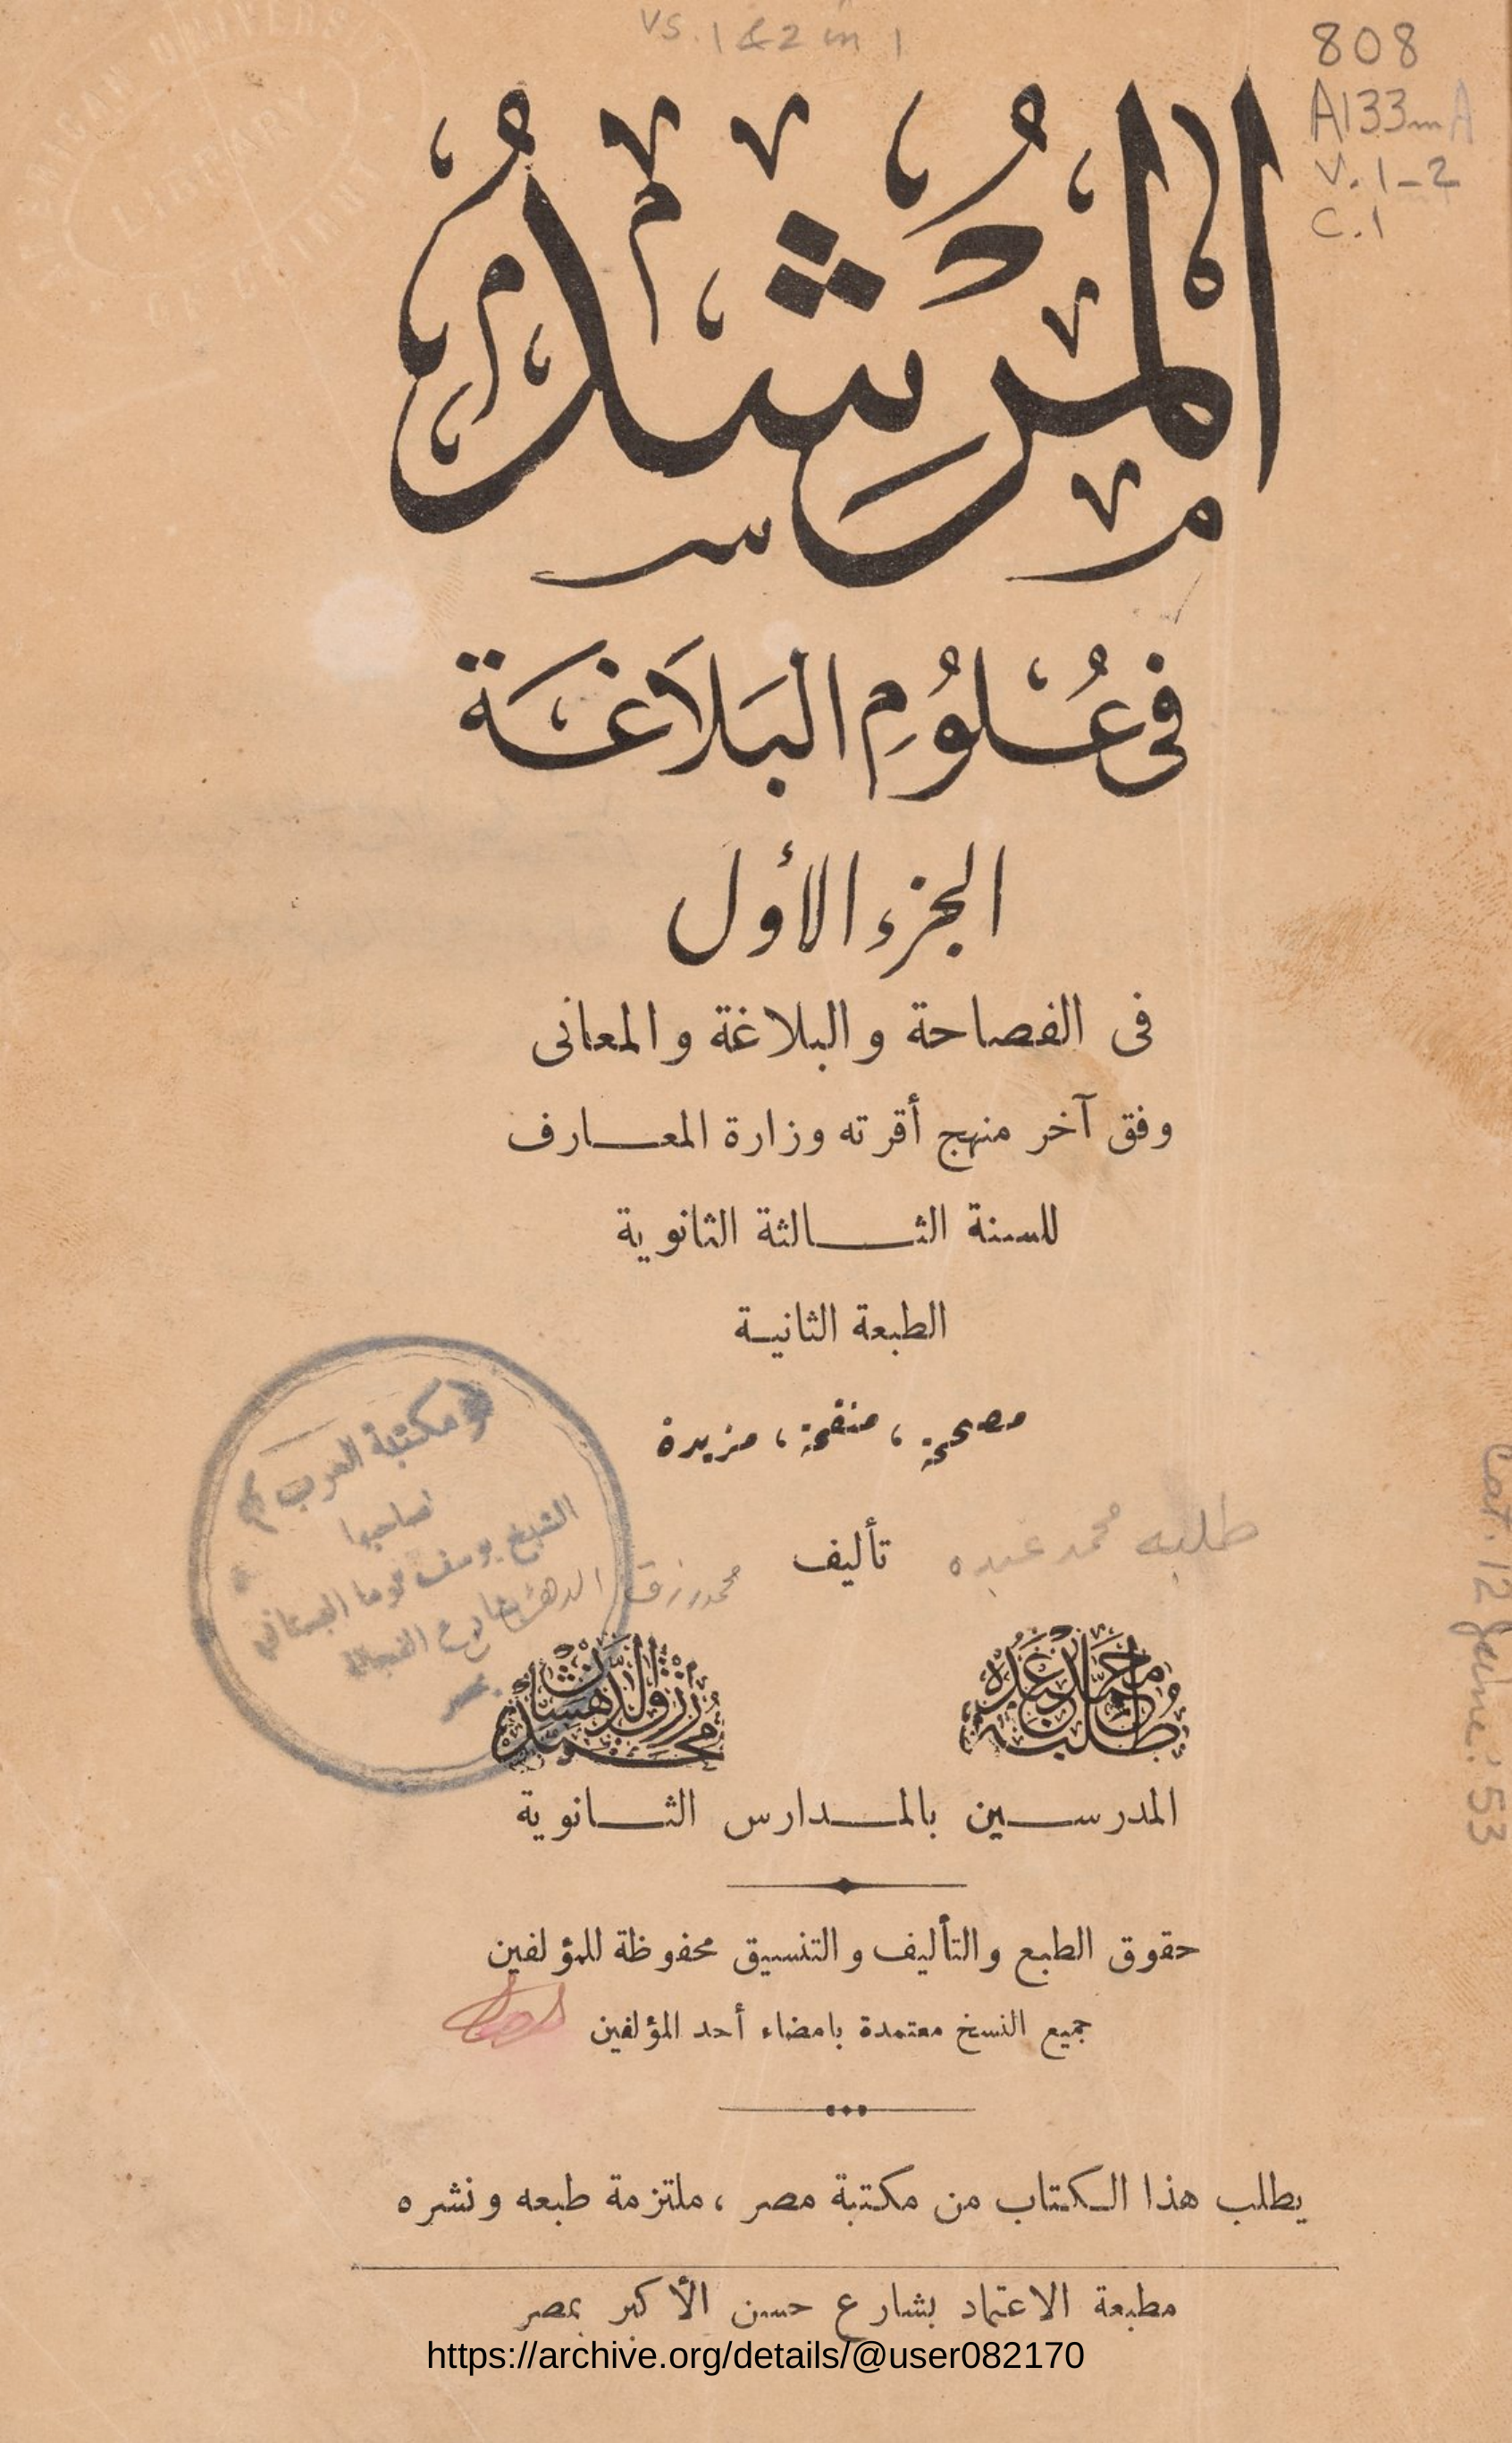 vs. 1 & 2 in 1
808
A133mA
v.1-2
c.1
LIBRARY
المُرْشِدُ
فى عُلُومِ البَلَاغَة
الجزء الأول
فى الفصاحة والبلاغة والمعانى
وفق آخر منهج أقرته وزارة المعارف
للسنة الثالثة الثانوية
الطبعة الثانية
مصححة، منقحة، مزيدة
تأليف
طلبه محمد عبده
محمد رزق الدهشان
مكتبة العرب
لصاحبها
الشيخ يوسف توما البستاني
بشارع الفجالة
بمصر
محمد عبده طلبه
محمد رزق الدهشان
المدرسين بالمدارس الثانوية
حقوق الطبع والتأليف والتنسيق محفوظة للمؤلفين
جميع النسخ معتمدة بامضاء أحد المؤلفين
يطلب هذا الكتاب من مكتبة مصر، ملتزمة طبعه ونشره
مطبعة الاعتماد بشارع حسن الأكبر بمصر
https://archive.org/details/@user082170
Cat. 12 June '53